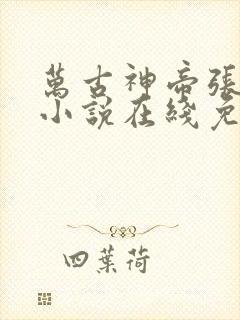 萬古神帝張
小說在綫免
四葉荷